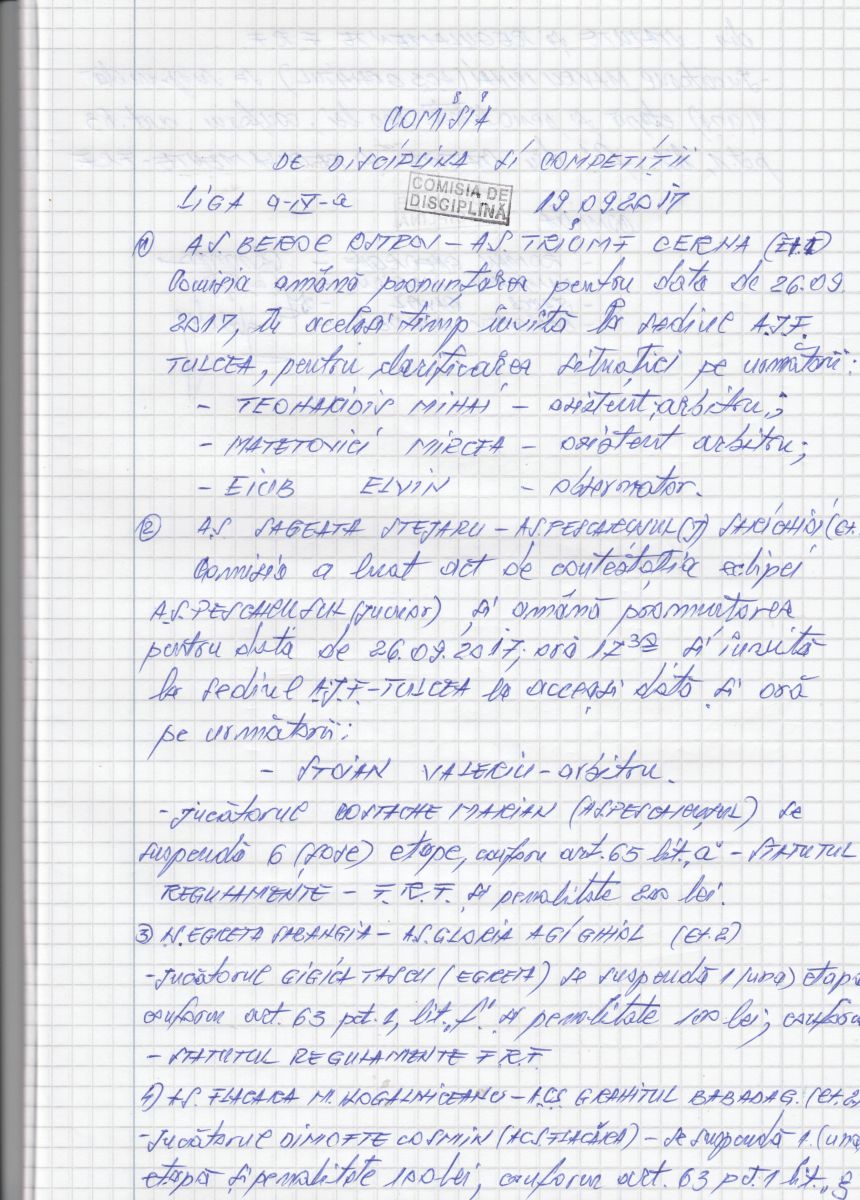 COMISIA
DE DISCIPLINA SI COMPETIȚII
LIGA a-IV-a COMISIA DE DISCIPLINĂ 19.09.2017
① A.S. BEROE OSTROV - A.S. TRIUMF CERNA (ET.1)
Comisia amână pronunțarea pentru data de 26.09.
2017, în același timp invită la sediul A.J.F.
TULCEA, pentru clarificarea situației pe următorii:
- TEOHARIDIS MIHAI - asistent arbitru;
- MATETOVICI MIRCEA - asistent arbitru;
- EIUB ELVIN - observator.
② A.S. SAGEATA STEJARU - A.S. PESCARUSUL (J) SARICHIOI (ET.
Comisia a luat act de contestația echipei
A.S. PESCARUSUL (Junior) și amână pronunțarea
pentru data de 26.09.2017, ora 17³⁰ și invită
la sediul A.J.F-TULCEA la aceeași dată și oră
pe următorii:
- STOIAN VALERIU - arbitru.
- Jucătorul COSTACHE MARIAN (AS.PESCARUSUL) se
suspendă 6 (șase) etape, conform art. 65 lit. „a" - STATUTUL
REGULAMENTE - F.R.F. și penalitate 200 lei.
③ AS.EGRETA SABANGIA - AS.GLORIA AGIGHIOL (ET.2)
- Jucătorul GIGICA TASCU (EGRETA) se suspendă 1 (una) etapă
conform art. 63 pct. 1, lit. „f" și penalitate 100 lei, conform
- STATUTUL REGULAMENTE F.R.F
4) AS. FLACARA M. KOGALNICEANU - ACS GRANITUL BABADAG. (ET.2
- Jucătorul DIMOFTE COSMIN (ACS FLACĂRA) - se suspendă 1 (una
etapă și penalitate 100 lei, conform art. 63 pct. 1 lit. „